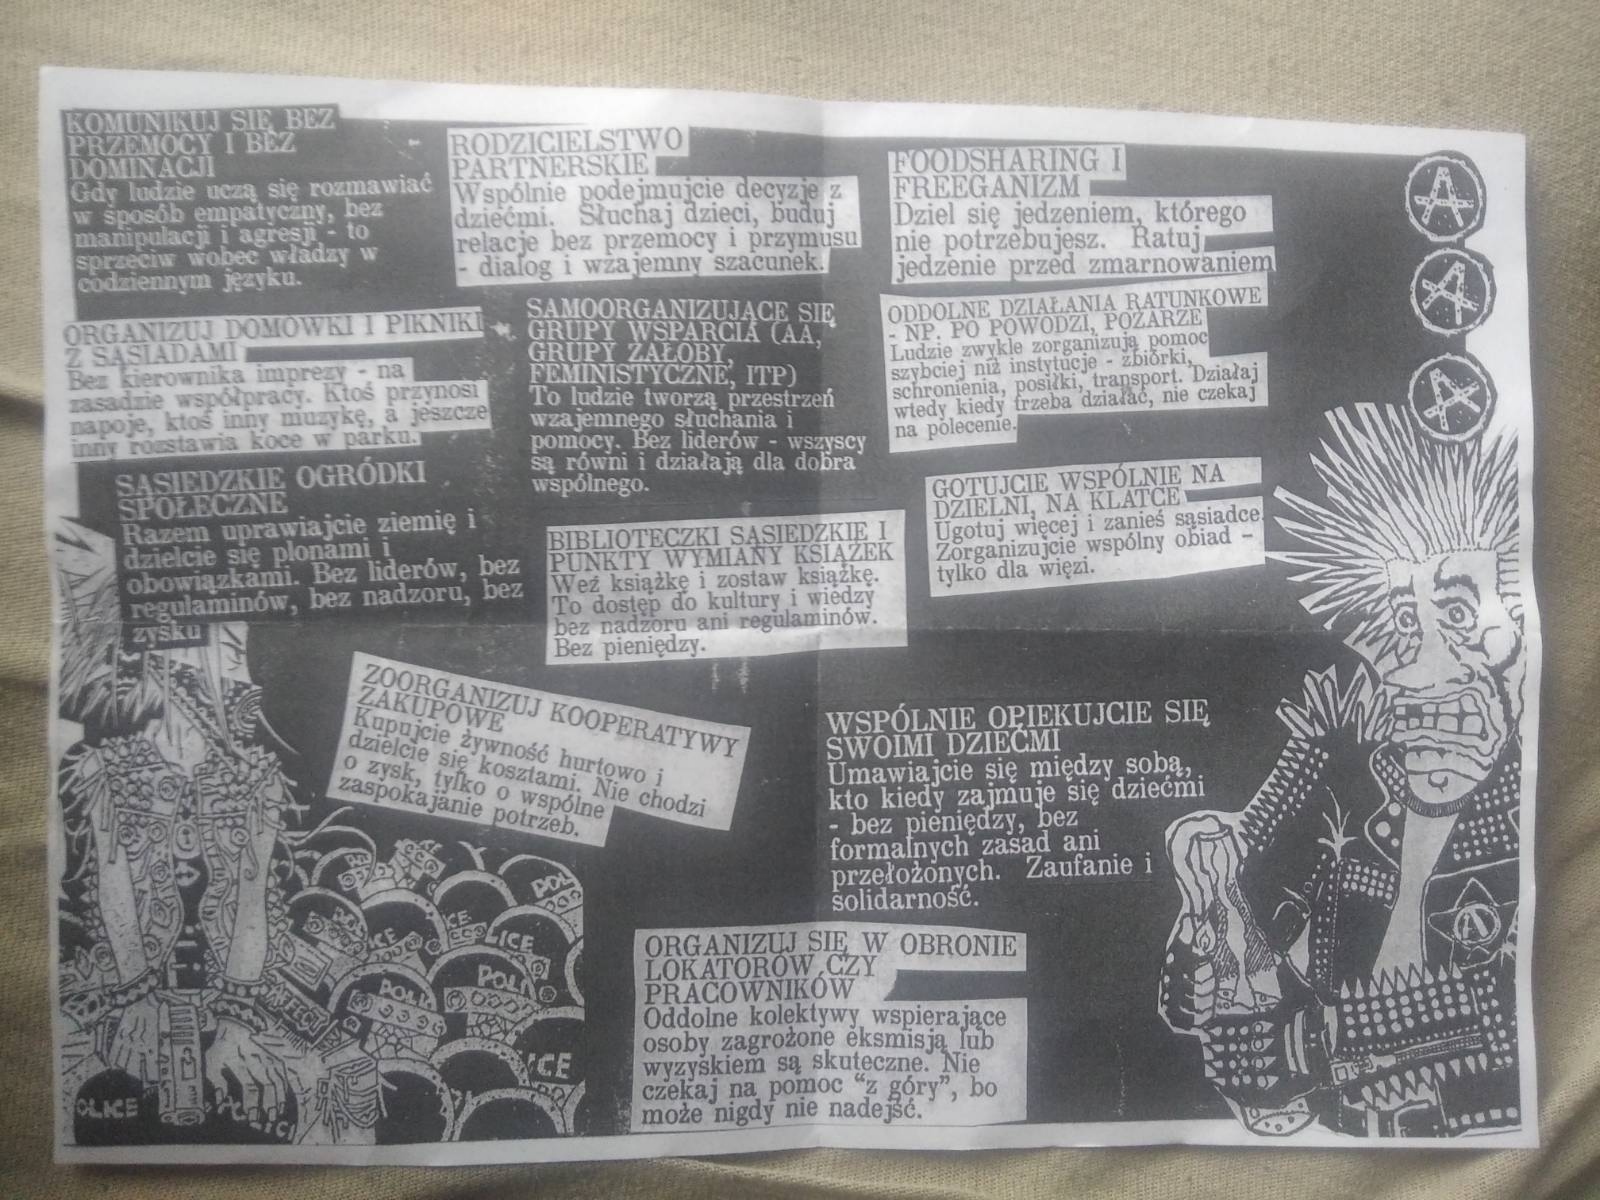 KOMUNIKUJ SIĘ BEZ
PRZEMOCY I BEZ
DOMINACJI
Gdy ludzie uczą się rozmawiać
w sposób empatyczny, bez
manipulacji i agresji - to
sprzeciw wobec władzy w
codziennym języku.
ORGANIZUJ DOMÓWKI I PIKNIKI
Z SĄSIADAMI
Bez kierownika imprezy - na
zasadzie współpracy. Ktoś przynosi
napoje, ktoś inny muzykę, a jeszcze
inny rozstawia koce w parku.
SĄSIEDZKIE OGRÓDKI
SPOŁECZNE
Razem uprawiajcie ziemię i
dzielcie się plonami i
obowiązkami. Bez liderów, bez
regulaminów, bez nadzoru, bez
zysku
RODZICIELSTWO
PARTNERSKIE
Wspólnie podejmujcie decyzje z
dziećmi. Słuchaj dzieci, buduj
relacje bez przemocy i przymusu
- dialog i wzajemny szacunek.
SAMOORGANIZUJĄCE SIĘ
GRUPY WSPARCIA (AA,
GRUPY ŻAŁOBY,
FEMINISTYCZNE, ITP)
To ludzie tworzą przestrzeń
wzajemnego słuchania i
pomocy. Bez liderów - wszyscy
są równi i działają dla dobra
wspólnego.
BIBLIOTECZKI SĄSIEDZKIE I
PUNKTY WYMIANY KSIĄŻEK
Weź książkę i zostaw książkę.
To dostęp do kultury i wiedzy
bez nadzoru ani regulaminów.
Bez pieniędzy.
FOODSHARING I
FREEGANIZM
Dziel się jedzeniem, którego
nie potrzebujesz. Ratuj
jedzenie przed zmarnowaniem
ODDOLNE DZIAŁANIA RATUNKOWE
- NP. PO POWODZI, POŻARZE
Ludzie zwykle zorganizują pomoc
szybciej niż instytucje - zbiórki,
schronienia, posiłki, transport. Działaj
wtedy kiedy trzeba działać, nie czekaj
na polecenie.
GOTUJCIE WSPÓLNIE NA
DZIELNI, NA KLATCE
Ugotuj więcej i zanieś sąsiadce.
Zorganizujcie wspólny obiad -
tylko dla więzi.
ZOORGANIZUJ KOOPERATYWY
ZAKUPOWE
Kupujcie żywność hurtowo i
dzielcie się kosztami. Nie chodzi
o zysk, tylko o wspólne
zaspokajanie potrzeb.
WSPÓLNIE OPIEKUJCIE SIĘ
SWOIMI DZIEĆMI
Umawiajcie się między sobą,
kto kiedy zajmuje się dziećmi
- bez pieniędzy, bez
formalnych zasad ani
przełożonych. Zaufanie i
solidarność.
ORGANIZUJ SIĘ W OBRONIE
LOKATORÓW CZY
PRACOWNIKÓW
Oddolne kolektywy wspierające
osoby zagrożone eksmisją lub
wyzyskiem są skuteczne. Nie
czekaj na pomoc “z góry”, bo
może nigdy nie nadejść.
A
A
A
A
LICE
POLI
POLI
ICE
OLICE